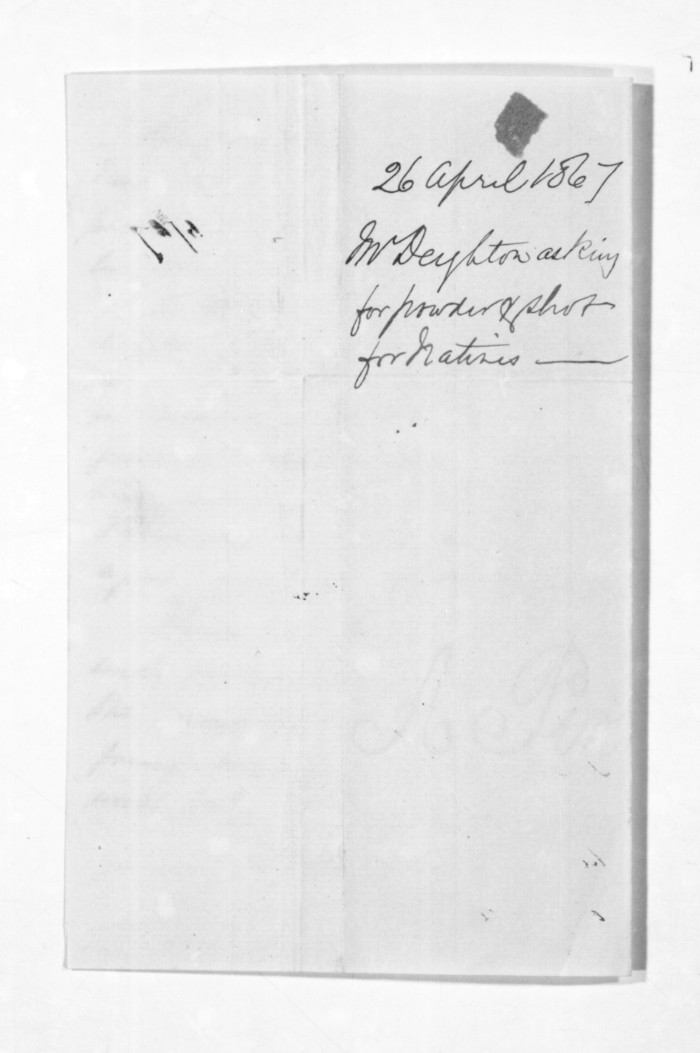 26 April 1867
Mr Deighton asking
for powder & shot
for Natives —